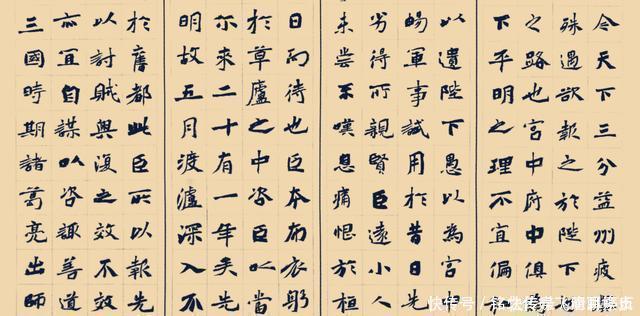 今天下三分益州疲
殊遇欲報之於陛下
之路也宮中府中俱
下平明之理不宜偏
以遺陛下愚以為宮
暢軍事試用於昔日
劣得所親賢臣遠小人
未嘗不嘆息痛恨於桓
日而待也臣本布衣躬
於草廬之中咨臣以當
尔来二十有一年矣先
明故五月渡瀘深入不
於舊都此臣所以報先
以討賊興復之效不效
亦宜自謀以咨諏善道
三國時期諸葛亮出師
快传号